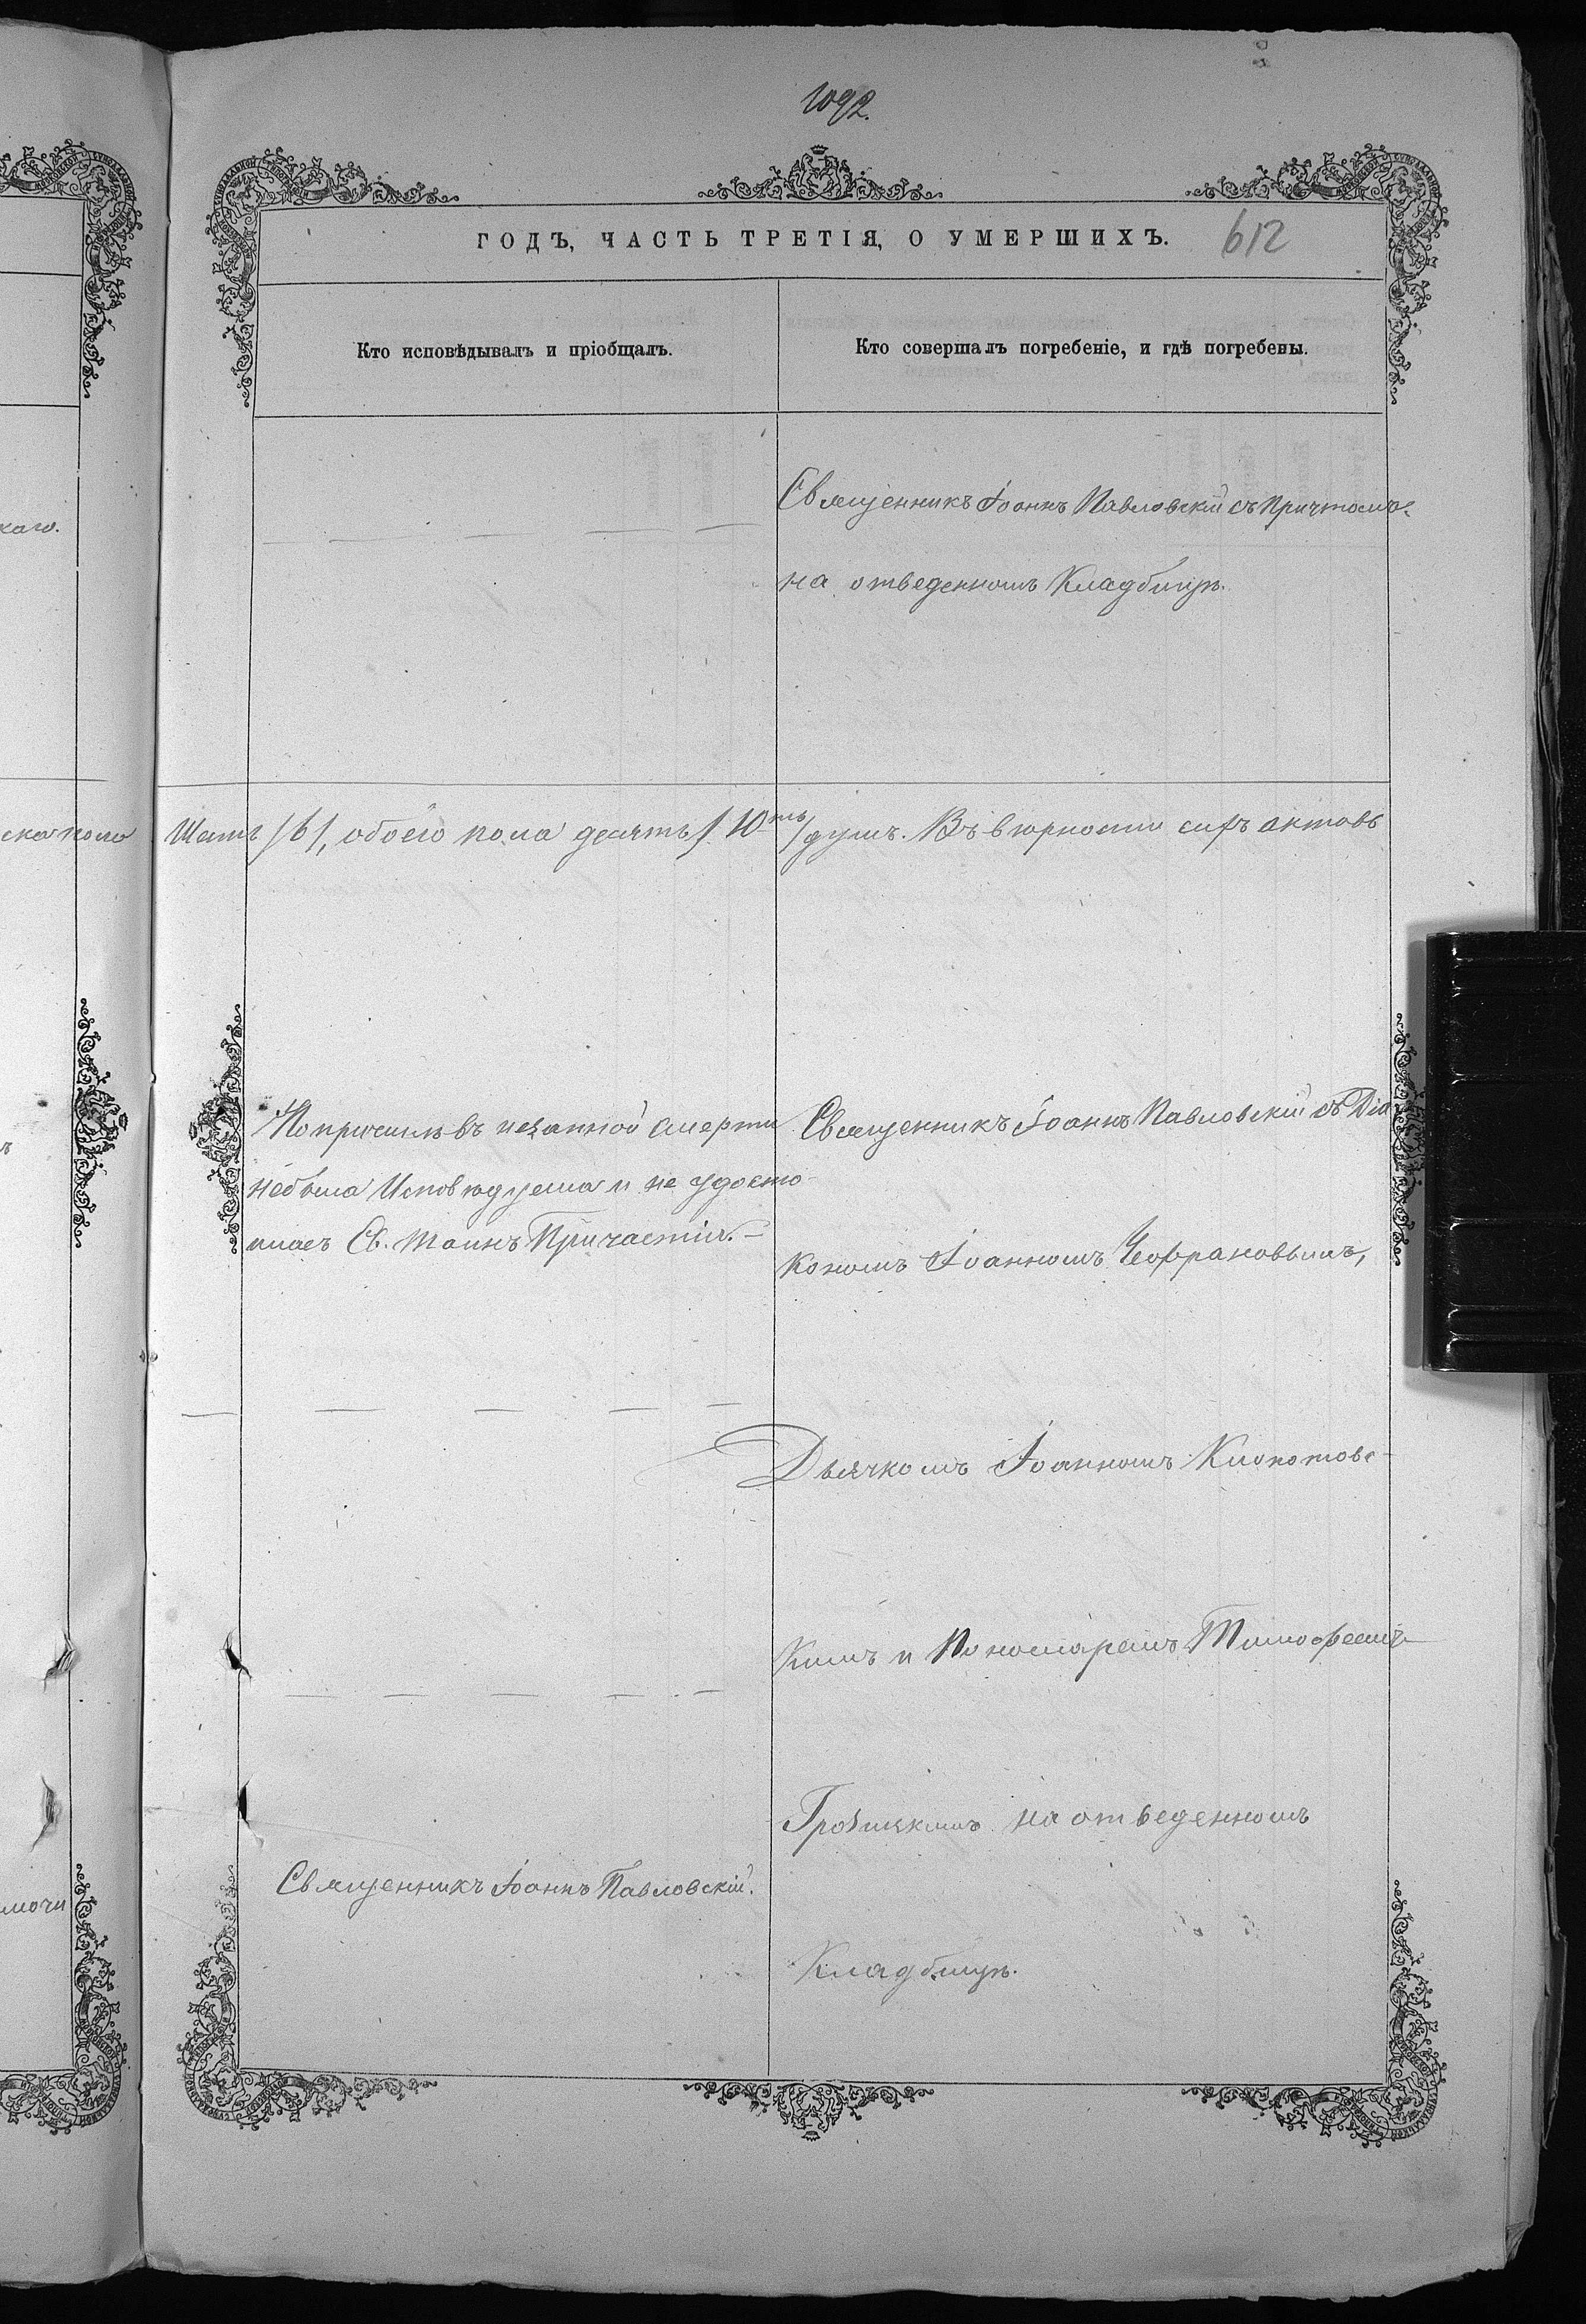 1092.
ГОДЪ, ЧАСТЬ ТРЕТІЯ, О УМЕРШИХЪ.
612
Кто исповѣдывалъ и пріобщалъ.
Кто совершалъ погребеніе, и гдѣ погребены.
Священникъ Іоаннъ Павловскій съ Причтомъ
на отведенномъ Кладбищѣ.
каго.
ска пола
Шесть /6/, обоего пола десять /10ть/ душъ. Въ вѣрности сихъ актовъ
По причинѣ внезапной смерти
небыла Исповѣдуема и не удосто
илась Св. Таинъ Причастія. —
Священникъ Іоаннъ Павловскій съ Діа
кономъ Іоанномъ
Дьячкомъ Іоанномъ Клопотовс-
кимъ и Пономаремъ Тимофеемъ
на отведенномъ
Кладбищѣ.
Священникъ Іоаннъ Павловскій.
мочи